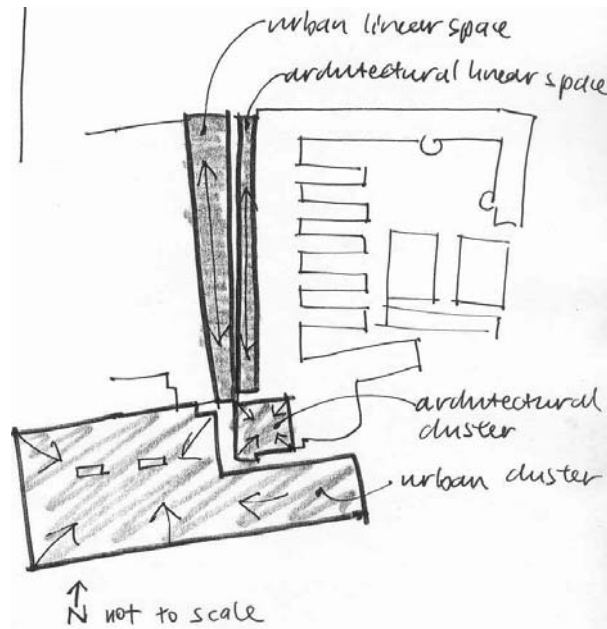 urban linear space
architectural linear space
architectural
cluster
urban cluster
N not to scale